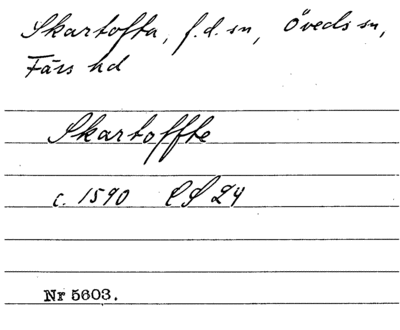 Skartofta, f.d. sn, Öveds sn,
Färs hd
Skartoffte
c. 1590 CS 24
Nr 5603.